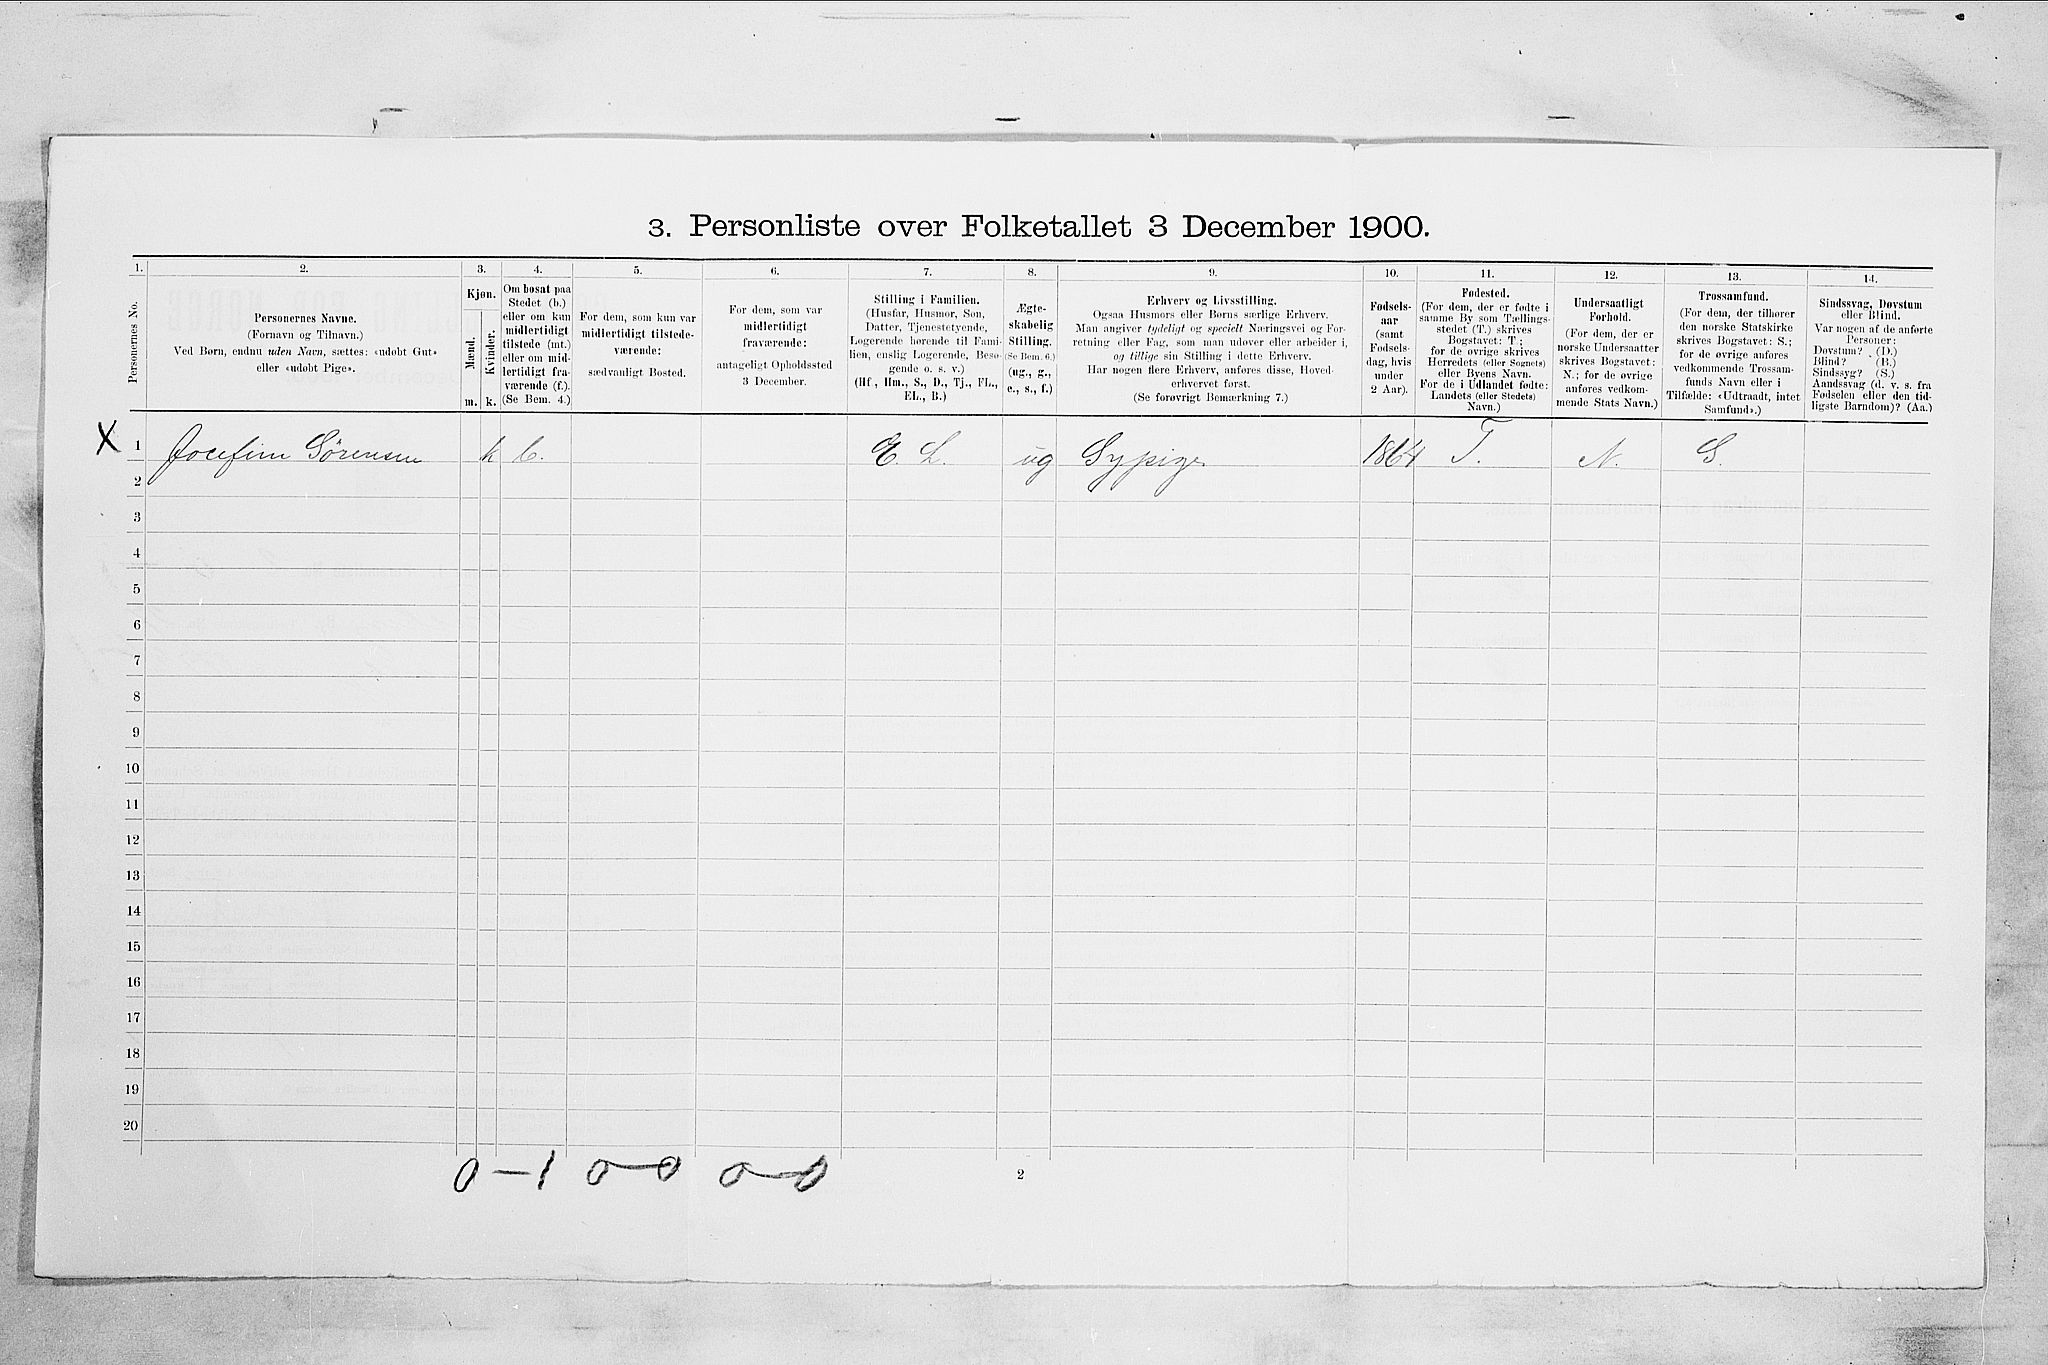 3. Personliste over Folketallet 3 December 1900.
1. 2. 3. 4. 5. 6. 7. 8. 9. 10. 11. 12. 13. 14.
Personernes No.
Personernes Navne.
(Fornavn og Tilnavn.)
Ved Børn, endnu uden Navn, sættes: «udøbt Gut»
eller «udøbt Pige».
Kjøn.
Mænd.
Kvinder.
m. k.
Om bosat paa
Stedet (b.)
eller om kun
midlertidigt
tilstede (mt.)
eller om mid-
lertidigt fra-
værende (f.).
(Se Bem. 4.)
For dem, som kun var
midlertidigt tilstede-
værende:
sædvanligt Bosted.
For dem, som var
midlertidigt
fraværende:
antageligt Opholdssted
3 December.
Stilling i Familien.
(Husfar, Husmor, Søn,
Datter, Tjenestetyende,
Logerende hørende til Fami-
lien, enslig Logerende, Besø-
gende o. s. v.)
(Hf., Hm., S., D., Tj., FL.,
EL., B.)
Ægte-
skabelig
Stilling.
(Se Bem. 6.)
(ug., g.,
e., s., f.)
Erhverv og Livsstilling.
Ogsaa Husmors eller Børns særlige Erhverv.
Man angiver tydeligt og specielt Næringsvei og For-
retning eller Fag, som man udøver eller arbeider i,
og tillige sin Stilling i dette Erhverv.
Har nogen flere Erhverv, anføres disse, Hoved-
erhvervet først.
(Se forøvrigt Bemærkning 7.)
Fødsels-
aar
(samt
Fødsels-
dag, hvis
under
2 Aar).
Fødested.
(For dem, der er fødte i
samme By som Tællings-
stedet (T.) skrives
Bogstavet: T;
for de øvrige skrives
Herredets (eller Sognets)
eller Byens Navn.
For de i Udlandet fødte:
Landets (eller Stedets)
Navn.)
Undersaatligt
Forhold.
(For dem, der er
norske Undersaatter
skrives Bogstavet:
N.; for de øvrige
anføres vedkom-
mende Stats Navn.)
Trossamfund.
(For dem, der tilhører
den norske Statskirke
skrives Bogstavet: S.;
for de øvrige anføres
vedkommende Trossam-
funds Navn eller i
Tilfælde: «Udtraadt, intet
Samfund».)
Sindssvag, Døvstum
eller Blind.
Var nogen af de anførte
Personer:
Døvstum? (D.)
Blind? (B.)
Sindssyg? (S.)
Aandssvag (d. v. s. fra
Fødselen eller den tid-
ligste Barndom)? (Aa.)
X 1 Josefine Sørensen k b. E. L. ug Sypige 1864 T. N. S.
2
3
4
5
6
7
8
9
10
11
12
13
14
15
16
17
18
19
20
0–1 0–0 0–0
2